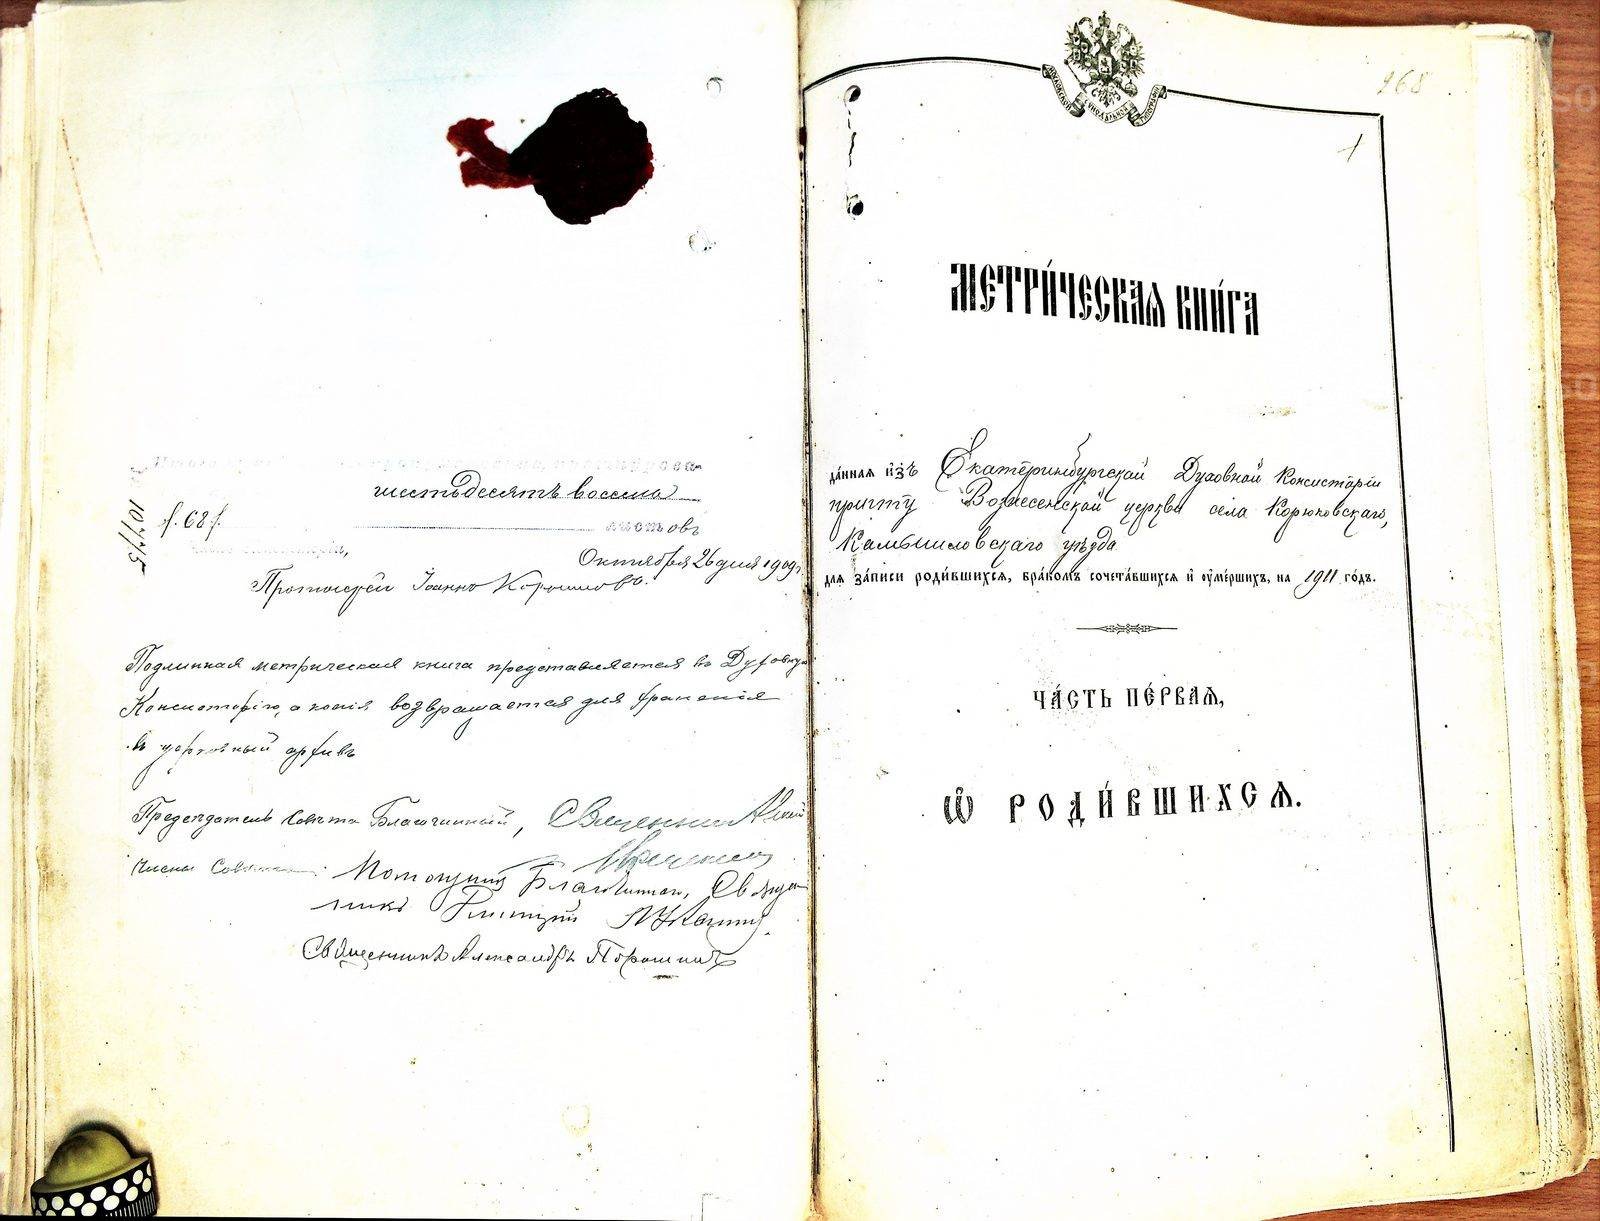 шестьдесятъ восемь
/.68/.
листовъ
10775
Октября 26 дня 1909 г.
Протоіерей Іоаннъ
Подлинная метрическая книга представляется въ Духовную
Консисторію, а копія возвращается для храненія
въ церковный архивъ
Председатель Совѣта Благочинный, Священникъ
Члены Совѣта: Помощникъ Благочиннаго, Священ-
никъ
Священникъ Александръ Порошинъ
МОСКОВСКОЙ СѴНОДАЛЬНОЙ ТИПОГРАФІИ
968
1
МЕТРИ́ЧЕСКАѦ КНИ́ГА
да́ннаѧ и҆з̾ Екатеринбургской Духовной Консисторіи
причту Вознесенской церкви села Корюковскаго,
Камышловскаго уѣзда
длѧ за́писи роди́вшихсѧ, бра́комъ сочета́вшихсѧ и҆ оу҆ме́ршихъ, на 1911 го́дъ.
ЧА́СТЬ ПЕ́РВАѦ,
Ѽ РОДИ́ВШИХСѦ.